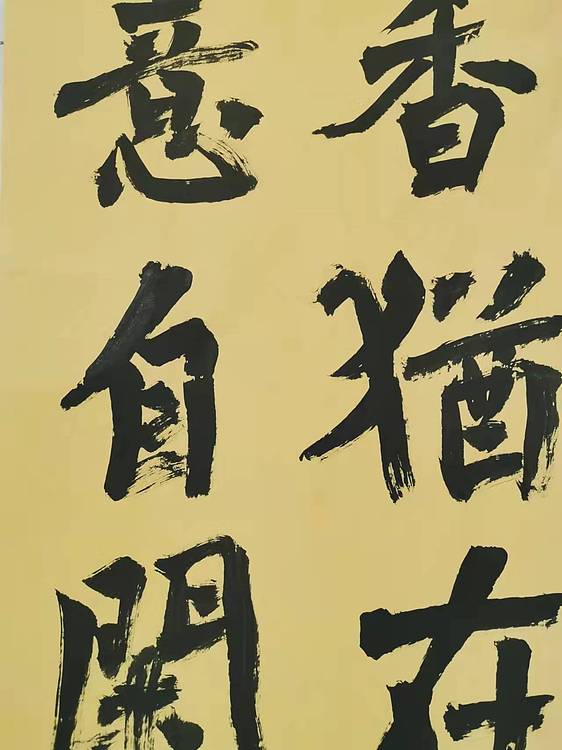 香猶在
意自閑